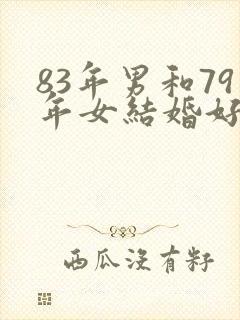 83年男和79
年女結婚好
西瓜沒有籽